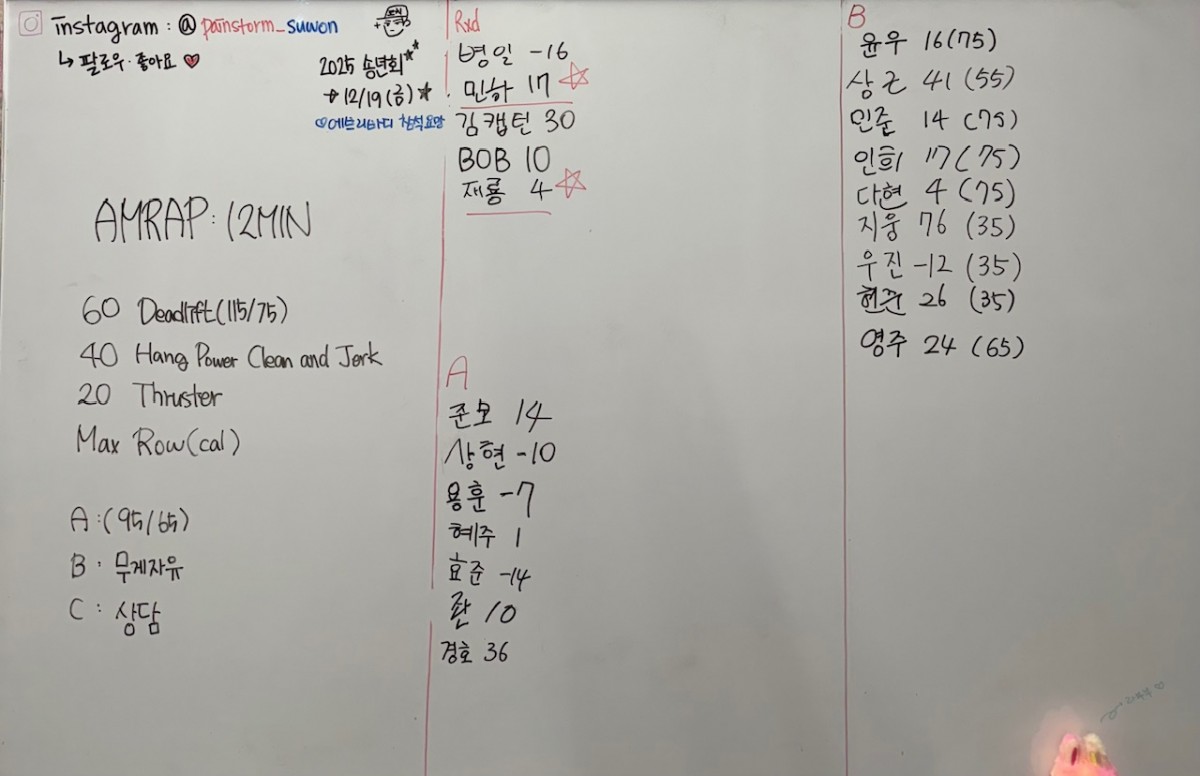 Instagram : @ painstorm_suwon
↳ 팔로우·좋아요 ♥
2025 송년회
→ 12/19(금)
♡에브리바디 참석요망
AMRAP : 12MIN
60 Deadlift(115/75)
40 Hang Power Clean and Jerk
20 Thruster
Max Row(cal)
A : (95/65)
B : 무게자유
C : 상담
Rxd
병일 -16
민하 17 ☆
김캡틴 30
BOB 10
재룡 4 ☆
A
준모 14
상현 -10
용훈 -7
혜주 1
효준 -14
란 10
경호 36
B
윤우 16(75)
상근 41 (55)
인준 14 (75)
인희 17 (75)
다현 4 (75)
지웅 76 (35)
우진 -12 (35)
현준 26 (35)
영주 24 (65)